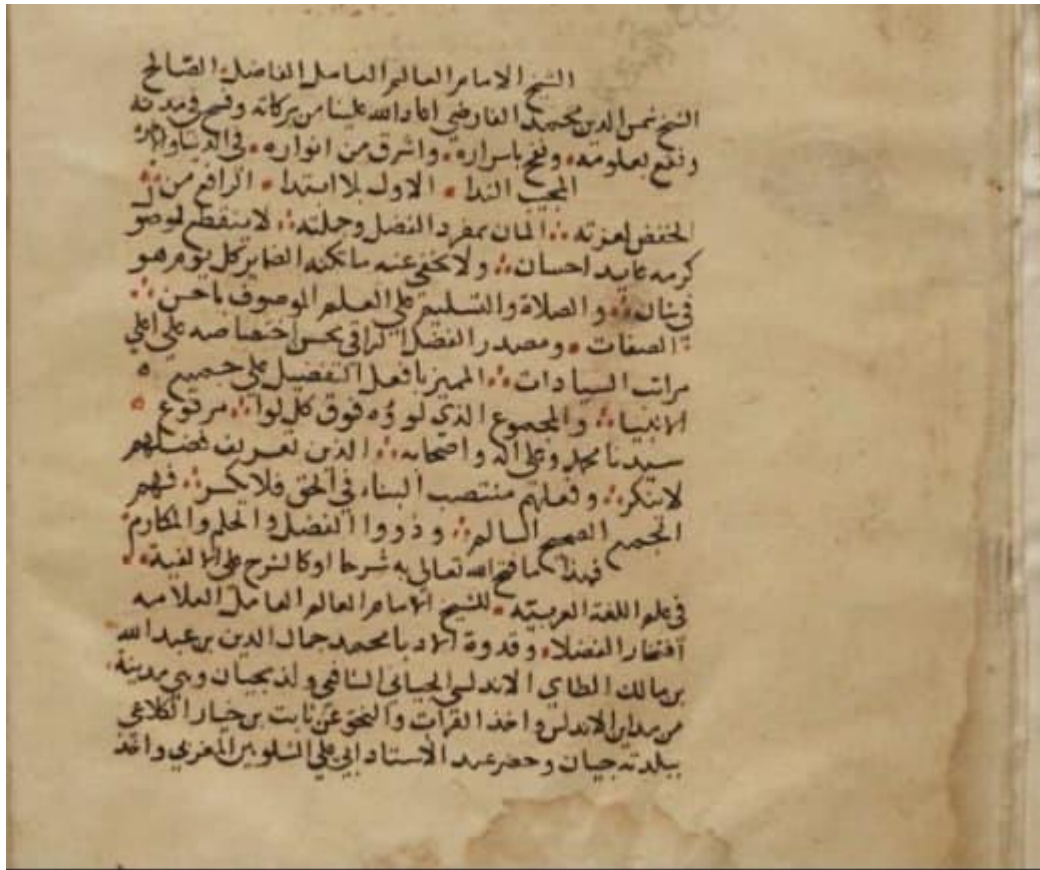 الشيخ الامام العالم العامل الفاضل الصالح
الشيخ شمس الدين محمد الفارضي اعاد الله علينا من بركاته وفسح في مدته
ونفع بعلومه ونفح باسراره واشرق من انواره في الدنيا والاخره
المجيب الندا الاول بلا ابتدا الرافع من
الخفض لعزته المان بمفرد الفضل وجملته لا ينقطع لموصول
كرمه عايد احسان ولا يخفي عنه ما تكنه الضماير كل يوم هو
في شان والصلاة والتسليم علي العلم الموصوف باحسن
الصفات ومصدر الفضل الراقي بحسن اختصاصه علي اعلي
مراتب السيادات المميز بافعل التفضيل علي جميع
الانبيا والمجموع الذي لوؤه فوق كل لوا مرفوع
سيدنا محمد وعلي اله واصحابه الذين تعريف فضلهم
لا ينكر وفعلهم منتصب البناء في الحق فلا يكسر فهم
الجمع الصحيح السالم وذووا الفضل والحلم والمكارم
فهذا ما فتح الله تعالي به شرحا او كالشرح علي الالفية
في علم اللغة العربيه للشيخ الامام العالم العامل العلامه
افتخار الفضلا وقدوة الادبا محمد جمال الدين بن عبد الله
بن مالك الطاي الاندلسي الجياني الشافعي ولد بجيان وهي مدينة
من مداين الاندلس واخذ القرات والنحو عن ثابت بن خيار الكلاعي
ببلدته جيان وحضر عند الاستاد ابي علي الشلوبين المغربي واخذ